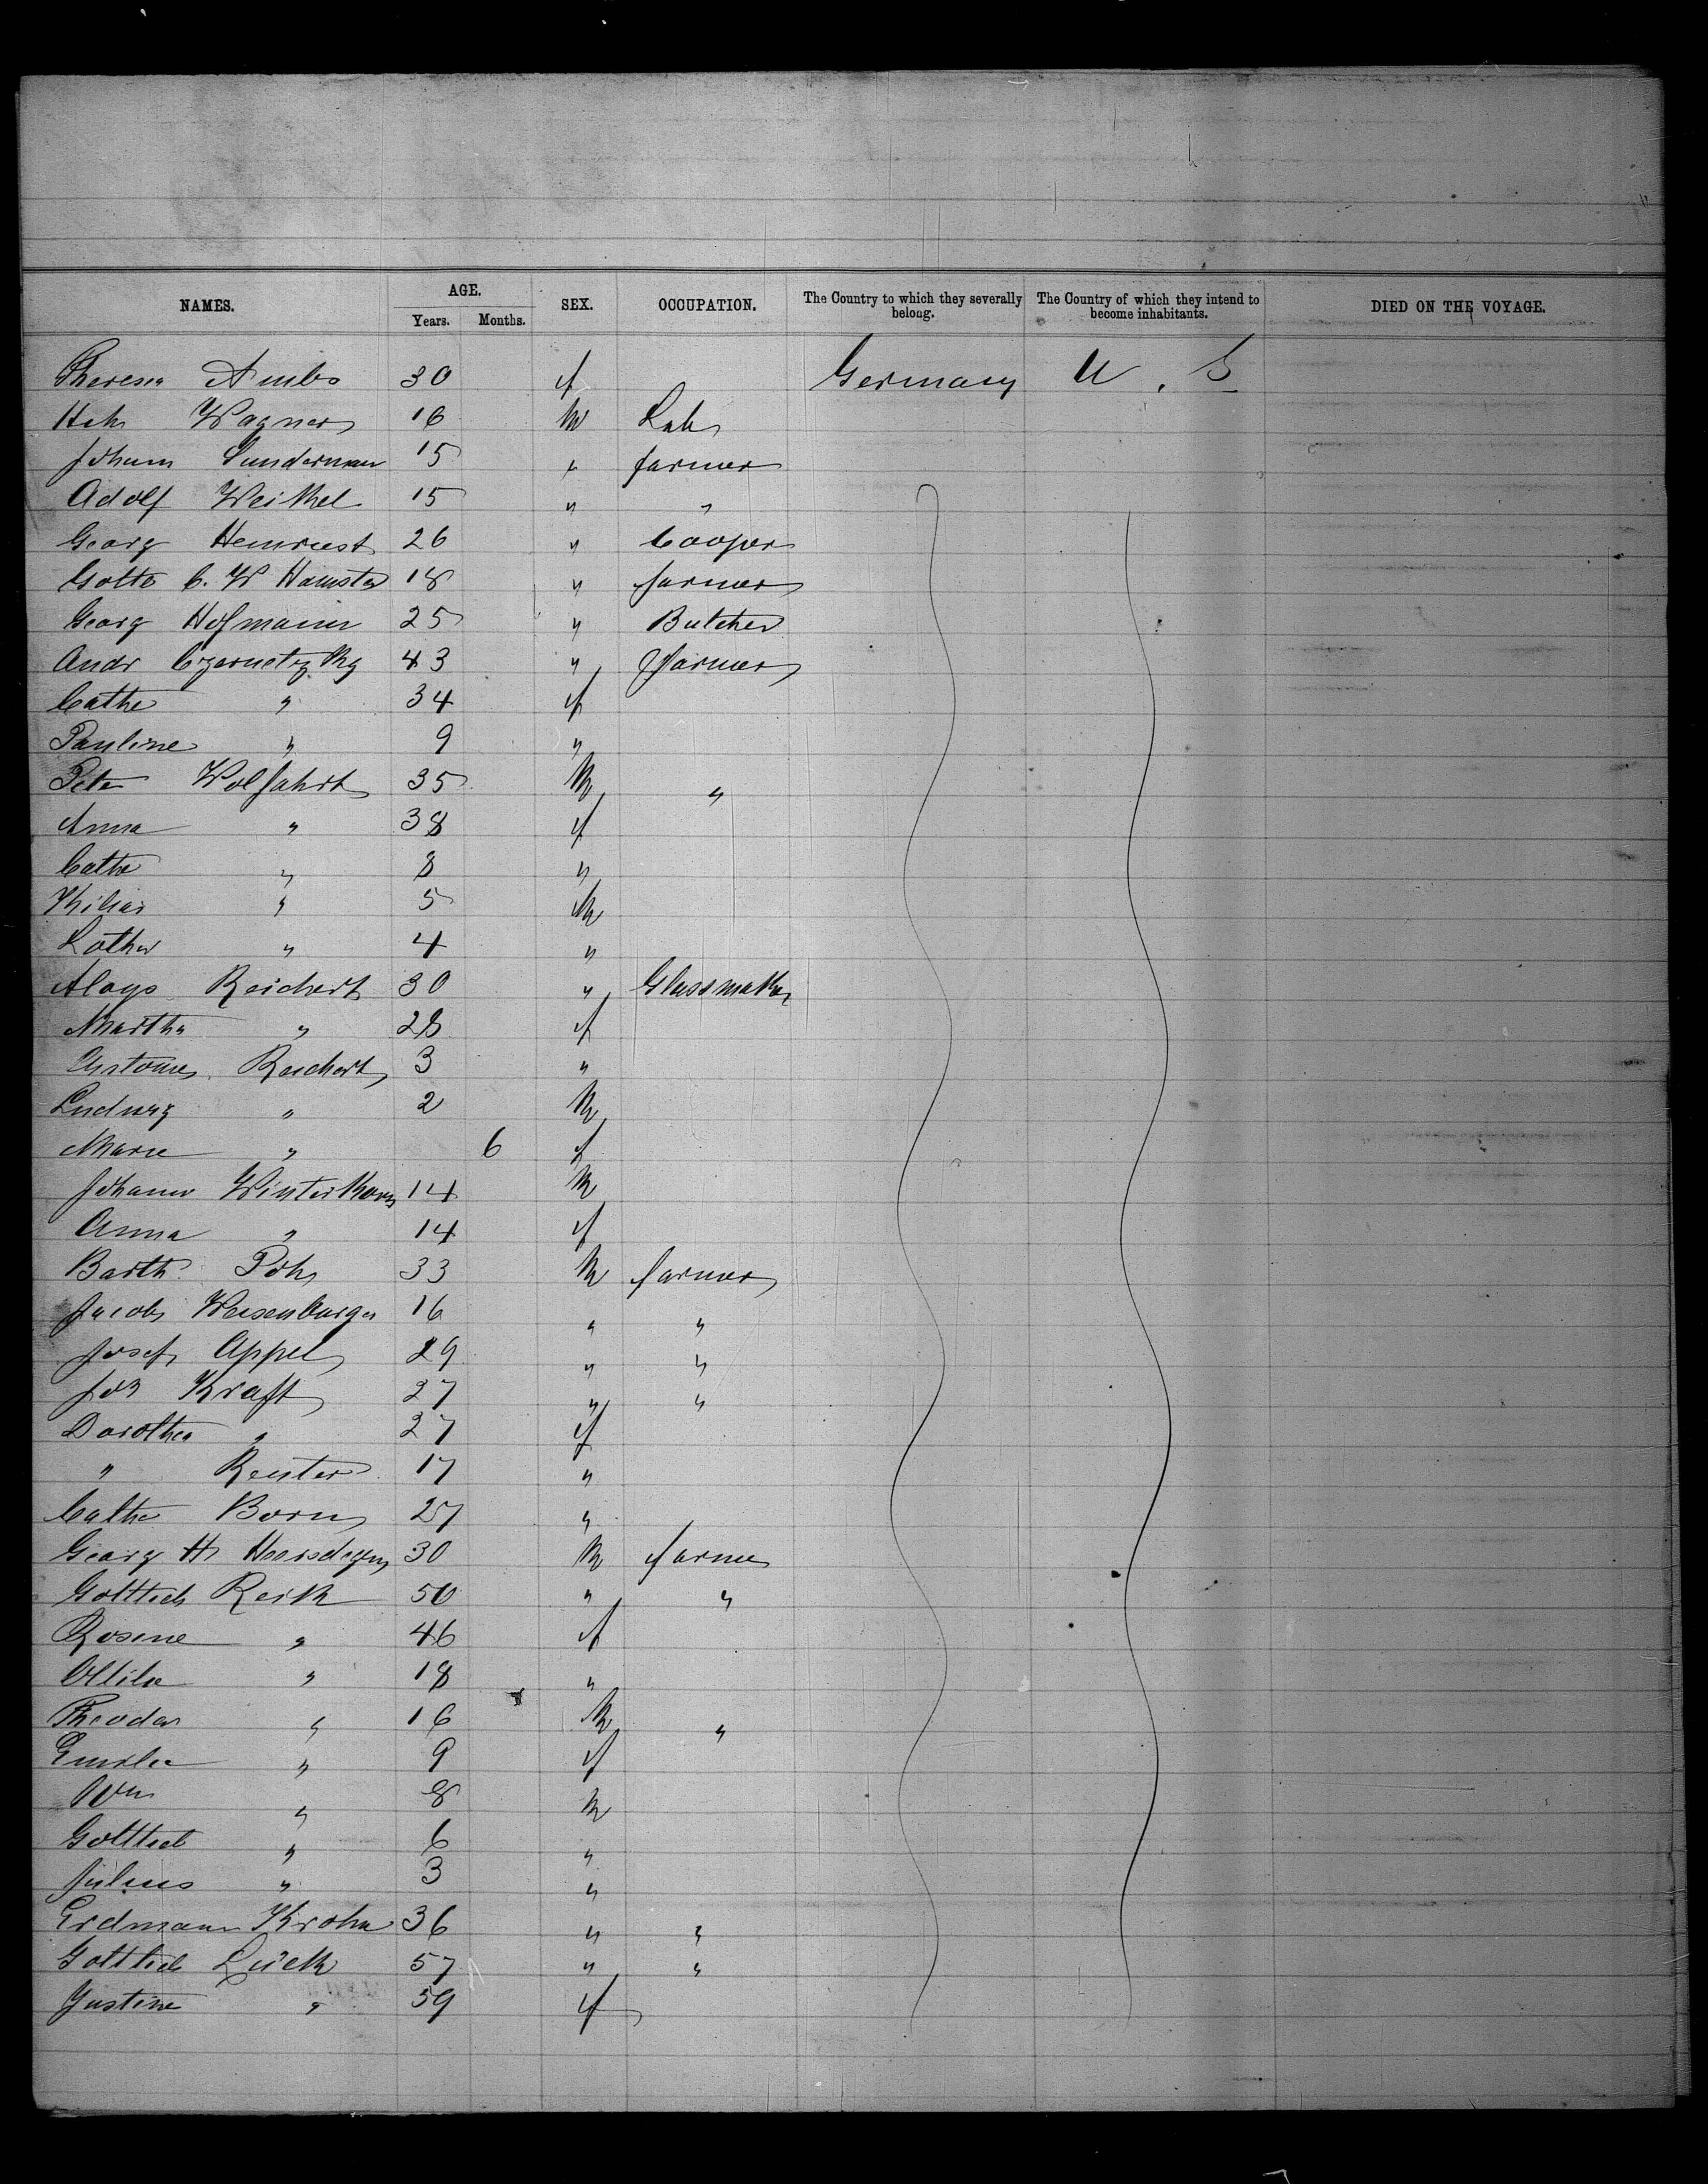 NAMES. AGE. SEX. OCCUPATION. The Country to which they severally belong. The Country of which they intend to become inhabitants. DIED ON THE VOYAGE.
Years. Months.
Theresia Ambs 30 f Germany U. S
Hch Wagner 16 M Lab
Johann Sunderman 15 " farmer
Adolf Weikhel 15 " "
Georg 26 " Cooper
Gotte C. W 18 " farmer
Georg Hofmann 25 " Butcher
Andr 43 " farmer
Cathe " 34 f
Pauline " 9 "
Peter Wolfahrt 35 M "
Anna " 38 f
Cathe " 8 "
Kilian " 5 M
Lother " 4 "
Aloys Reichert 30 " Glassmaker
Martha " 28 f
Reichert 3 "
Ludwig " 2 M
Marie " 6 f
Johann Winterkorn 14 M
Anna " 14 f
Barth 33 M farmer
Jacob Weisenburger 16 " "
Josef Appel 29 " "
Joh Kraft 27 " "
Dorothea " 27 f
" Reuter 17 "
Cathe Born 27 "
Georg H 30 M farmer
Gottlieb Reik 50 " "
Rosine " 46 f
Ottilie " 18 "
Theodor " 16 M "
Emilie " 9 f
Wm " 8 M
Gottlieb " 6 "
Julius " 3 "
Erdmann Krohn 36 " "
Gottlieb Lück 57 " "
Justine " 59 f